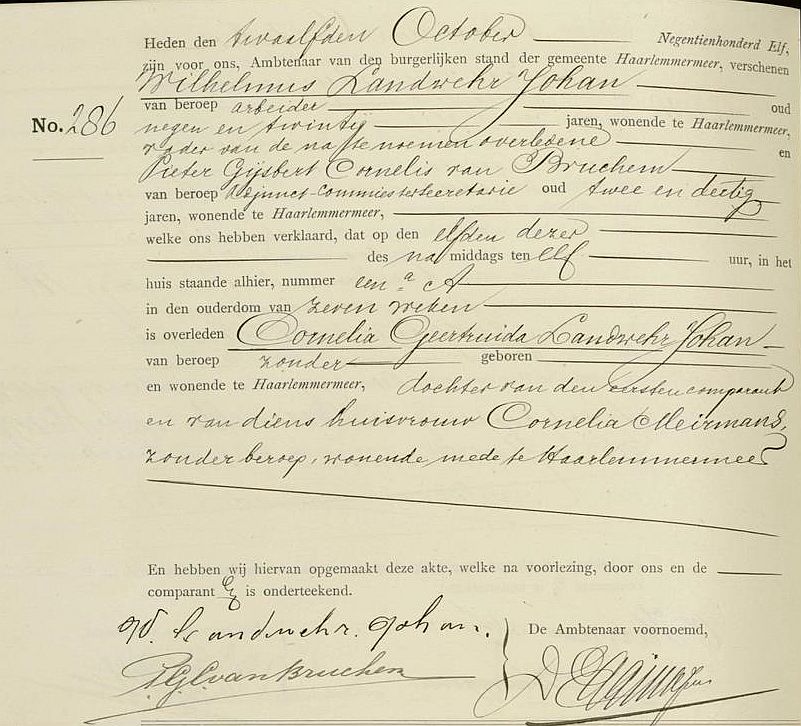 Heden den twaalfden October Negentienhonderd Elf,
zijn voor ons, Ambtenaar van den burgerlijken stand der gemeente Haarlemmermeer, verschenen
Wilhelmus Landwehr Johan
van beroep arbeider oud
No. 286 negen en twintig jaren, wonende te Haarlemmermeer,
vader van de na te noemen overledene en
Pieter Gijsbert Cornelis van Bruchem
van beroep Adjunct-Commies ter Secretarie oud twee en dertig
jaren, wonende te Haarlemmermeer,
welke ons hebben verklaard, dat op den elfden dezer
des na middags ten elf uur, in het
huis staande alhier, nummer een a A
in den ouderdom van zeven weken
is overleden Cornelia Geertruida Landwehr Johan
van beroep zonder geboren
en wonende te Haarlemmermeer, dochter van den eersten comparant
en van diens huisvrouw Cornelia Meirmans,
zonder beroep, wonende mede te Haarlemmermeer
En hebben wij hiervan opgemaakt deze akte, welke na voorlezing, door ons en de
comparant en is onderteekend.
W. Landwehr. Johan.
De Ambtenaar voornoemd,
P.G.C. van Bruchem